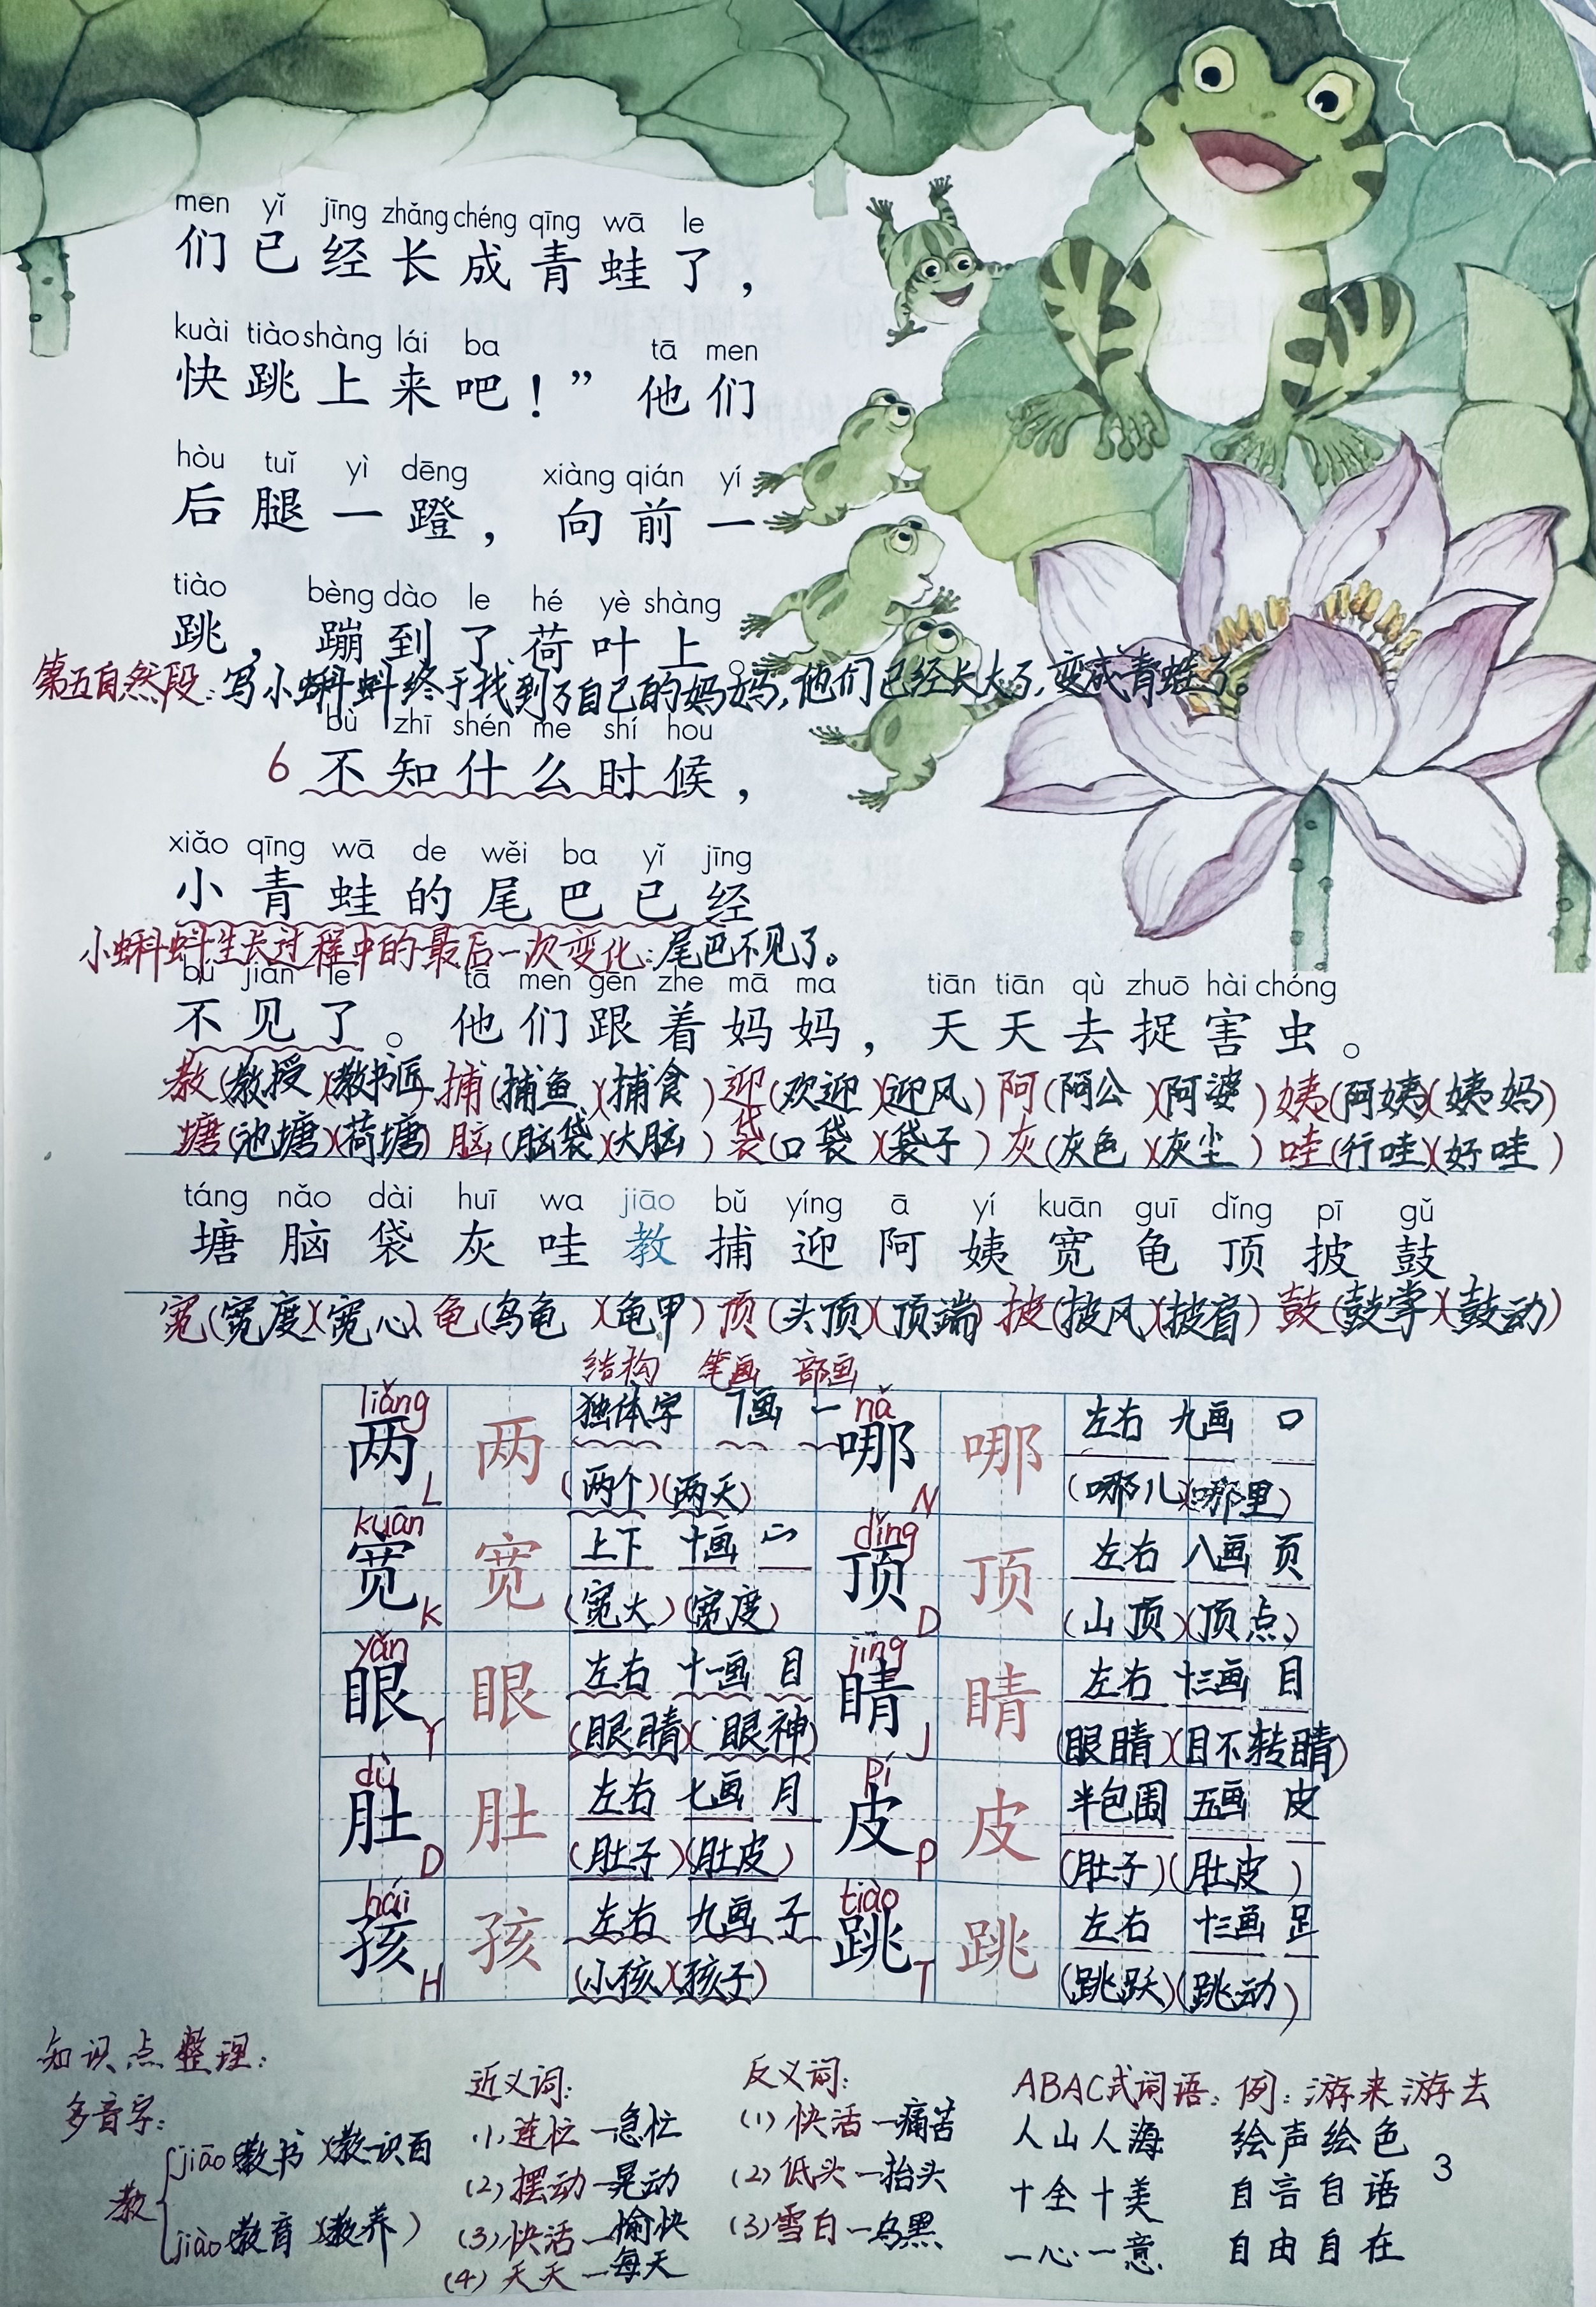 men yǐ jīng zhǎng chéng qīng wā le
们已经长成青蛙了，
kuài tiào shàng lái ba tā men
快跳上来吧！” 他们
hòu tuǐ yì dēng xiàng qián yí
后腿一蹬，向前一
tiào bèng dào le hé yè shàng
跳，蹦到了荷叶上。
第五自然段：写小蝌蚪终于找到了自己的妈妈，他们已经长大了，变成青蛙了。
bù zhī shén me shí hou
6 不知什么时候，
xiǎo qīng wā de wěi ba yǐ jīng
小青蛙的尾巴已经
小蝌蚪生长过程中的最后一次变化：尾巴不见了。
bú jiàn le tā men gēn zhe mā ma tiān tiān qù zhuō hài chóng
不见了。他们跟着妈妈，天天去捉害虫。
教(教授)(教书匠) 捕(捕鱼)(捕食) 迎(欢迎)(迎风) 阿(阿公)(阿婆) 姨(阿姨)(姨妈)
塘(池塘)(荷塘) 脑(脑袋)(大脑) 袋(口袋)(袋子) 灰(灰色)(灰尘) 哇(行哇)(好哇)
táng nǎo dài huī wa jiāo bǔ yíng ā yí kuān guī dǐng pī gǔ
塘 脑 袋 灰 哇 教 捕 迎 阿 姨 宽 龟 顶 披 鼓
宽(宽度)(宽心) 龟(乌龟)(龟甲) 顶(头顶)(顶端) 披(披风)(披肩) 鼓(鼓掌)(鼓动)
结构 笔画 部画
liǎng 独体字 7画 一 nǎ 左右 九画 口
两 L 两 (两个)(两天) 哪 N 哪 (哪儿)(哪里)
kuān 上下 十画 宀 dǐng 左右 八画 页
宽 K 宽 (宽大)(宽度) 顶 D 顶 (山顶)(顶点)
yǎn 左右 十一画 目 jīng 左右 十三画 目
眼 Y 眼 (眼睛)(眼神) 睛 J 睛 (眼睛)(目不转睛)
dù 左右 七画 月 pí 半包围 五画 皮
肚 D 肚 (肚子)(肚皮) 皮 P 皮 (肚子)(肚皮)
hái 左右 九画 子 tiào 左右 十三画 足
孩 H 孩 (小孩)(孩子) 跳 T 跳 (跳跃)(跳动)
知识点整理：
多音字：
教 jiāo(教书)(教识百
jiào(教育)(教养)
近义词：
(1)连忙—急忙
(2)摆动—晃动
(3)快活—愉快
(4)天天—每天
反义词：
(1)快活—痛苦
(2)低头—抬头
(3)雪白—乌黑
ABAC式词语：例：游来游去
人山人海 绘声绘色
十全十美 自言自语
一心一意 自由自在
3